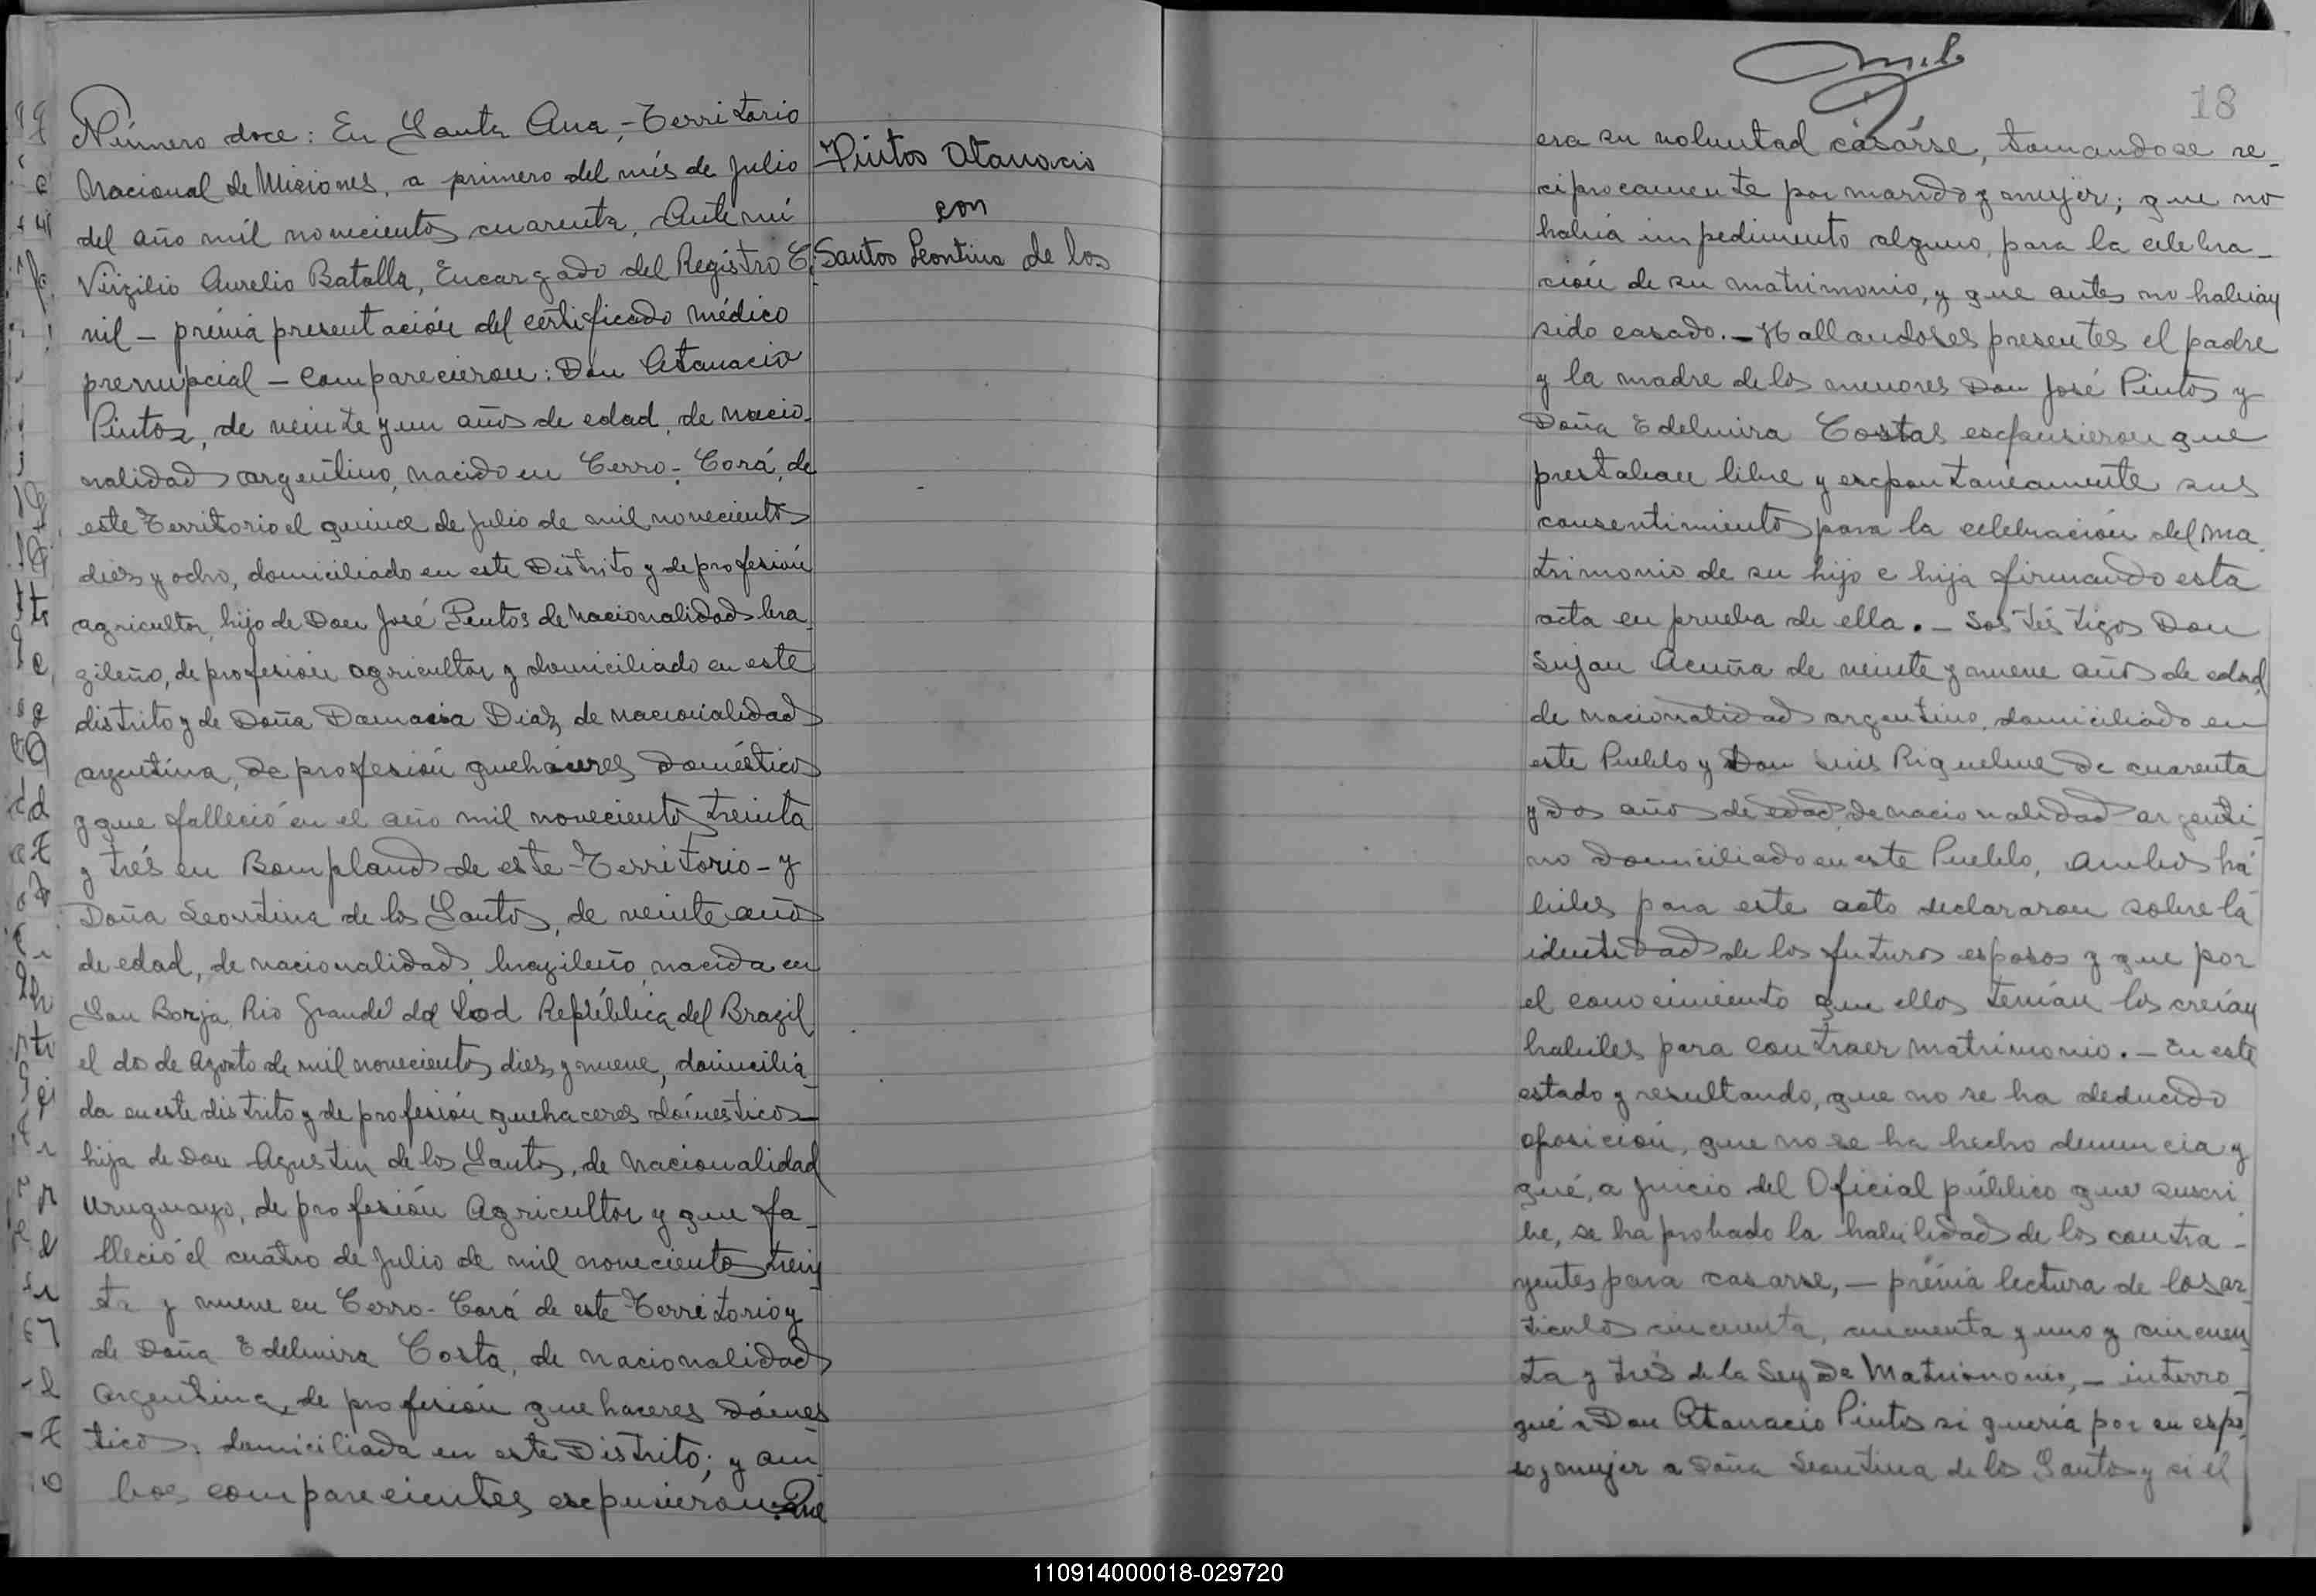 Número doce: En Santa Ana,- Territorio
Nacional de Misiones, a primero del més de Julio
del año mil novecientos cuarenta, Ante mi
Virgilio Aurelio Batalla, Encargado del Registro Ci
vil - prévia presentación del certificado médico
prenupcial - Comparecieron: Don Atanacio
Pintos, de veinte y un años de edad, de nacio-
nalidad argentino, nacido en Cerro-Corá, de
este Territorio el quince de Julio de mil novecientos
diez y ocho, domiciliado en este Distrito y de profesión
agricultor, hijo de Don José Pintos de nacionalidad bra
zileño, de profesión agricultor y domiciliado en este
distrito y de Doña Damacia Diaz de nacionalidad
argentina, de profesión quehaceres Domésticos
y que falleció en el año mil novecientos treinta
y trés en Bompland de este -Territorio- y
Doña Leontina de los Santos, de veinte años
de edad, de nacionalidad brazileño nacida en
San Borja, Rio Grande del Sod República del Brazil
el dos de Agosto de mil novecientos diez y nueve, domicilia-
da en este distrito y de profesión quehaceres doméstico
hija de Don Agustin de los Santos, de Nacionalidad
Uruguayo, de profesión Agricultor y que fa-
lleció el cuatro de Julio de mil novecientos trein
ta y nueve en Cerro-Corá de este Territorio y
de Doña Edelmira Costa, de nacionalidad
Argentina, de profesión quehaceres Domés
ticos, domiciliada en este Distrito; y am-
bos comparecientes excpusieron: Que
Pintos Atanacio
con
Santos Leontina de los
18
era su voluntad casárse, tomandose re-
ciprocamente por marido y mujer; que no
habia impedimento alguno, para la celebra-
ción de su matrimonio, y que antes no habian
sido casado.- Hallandoses presentes el padre
y la madre de los menores Don José Pintos y
Doña Edelmira Costas excpusieron que
prestaban libre y excpontaneamente sus
consentimientos para la celebración del ma
trimonio de su hijo e hija firmando esta
acta en prueba de ella.- Los téstigos Don
Lujan Acuña de veinte y nueve años de edad,
de nacionalidad argentino, domiciliado en
este Pueblo y Don Luis Riquelme de cuarenta
y dos años de edad de nacionalidad argenti-
no domiciliado en este Pueblo, Ambos há
biles para este acto declararon sobre la
identidad de los futuros esposos y que por
el conocimiento que ellos tenian los creían
habiles para contraer matrimonio.- En este
estado y resultando, que no se ha deducido
oposición, que no se ha hecho denuncia y
qué, a juicio del Oficial público que suscri
be, se ha probado la habilidad de los contra-
yentes para casarse, - prévia lectura de los ar-
ticulos cincuenta, cincuenta y uno y cincuen
ta y trés de la Ley de Matrimonio, - interro-
gué a Don Atanacio Pintos si queria por su espo
so y mujer a Doña Leontina de los Santos y si el
110914000018-029720